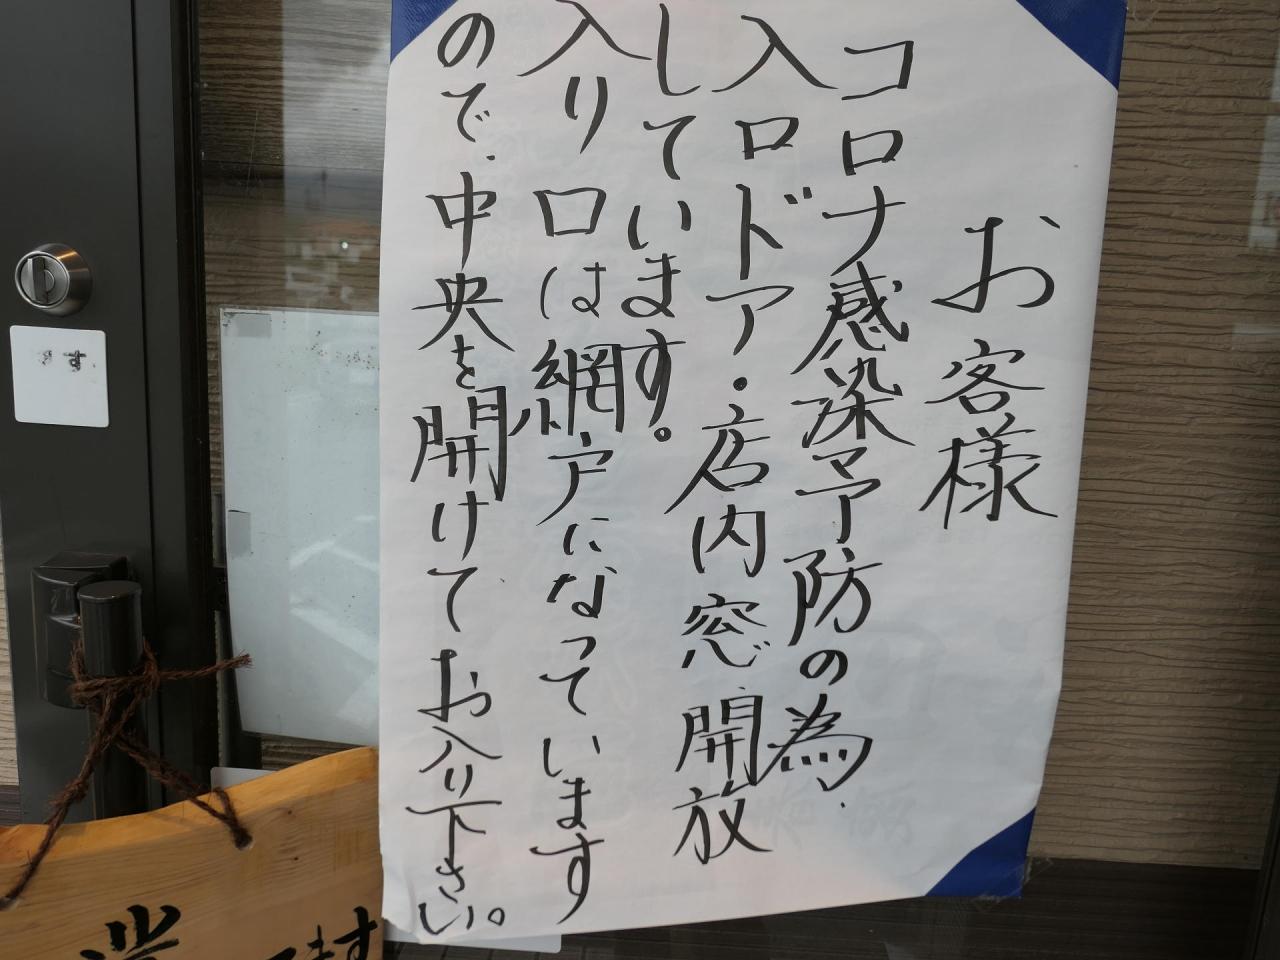 お客様
コロナ感染予防の為、
入口ドア・店内窓開放
しています。
入り口は網戸になっています
ので、中央を開けてお入り下さい。
業
ます
す。